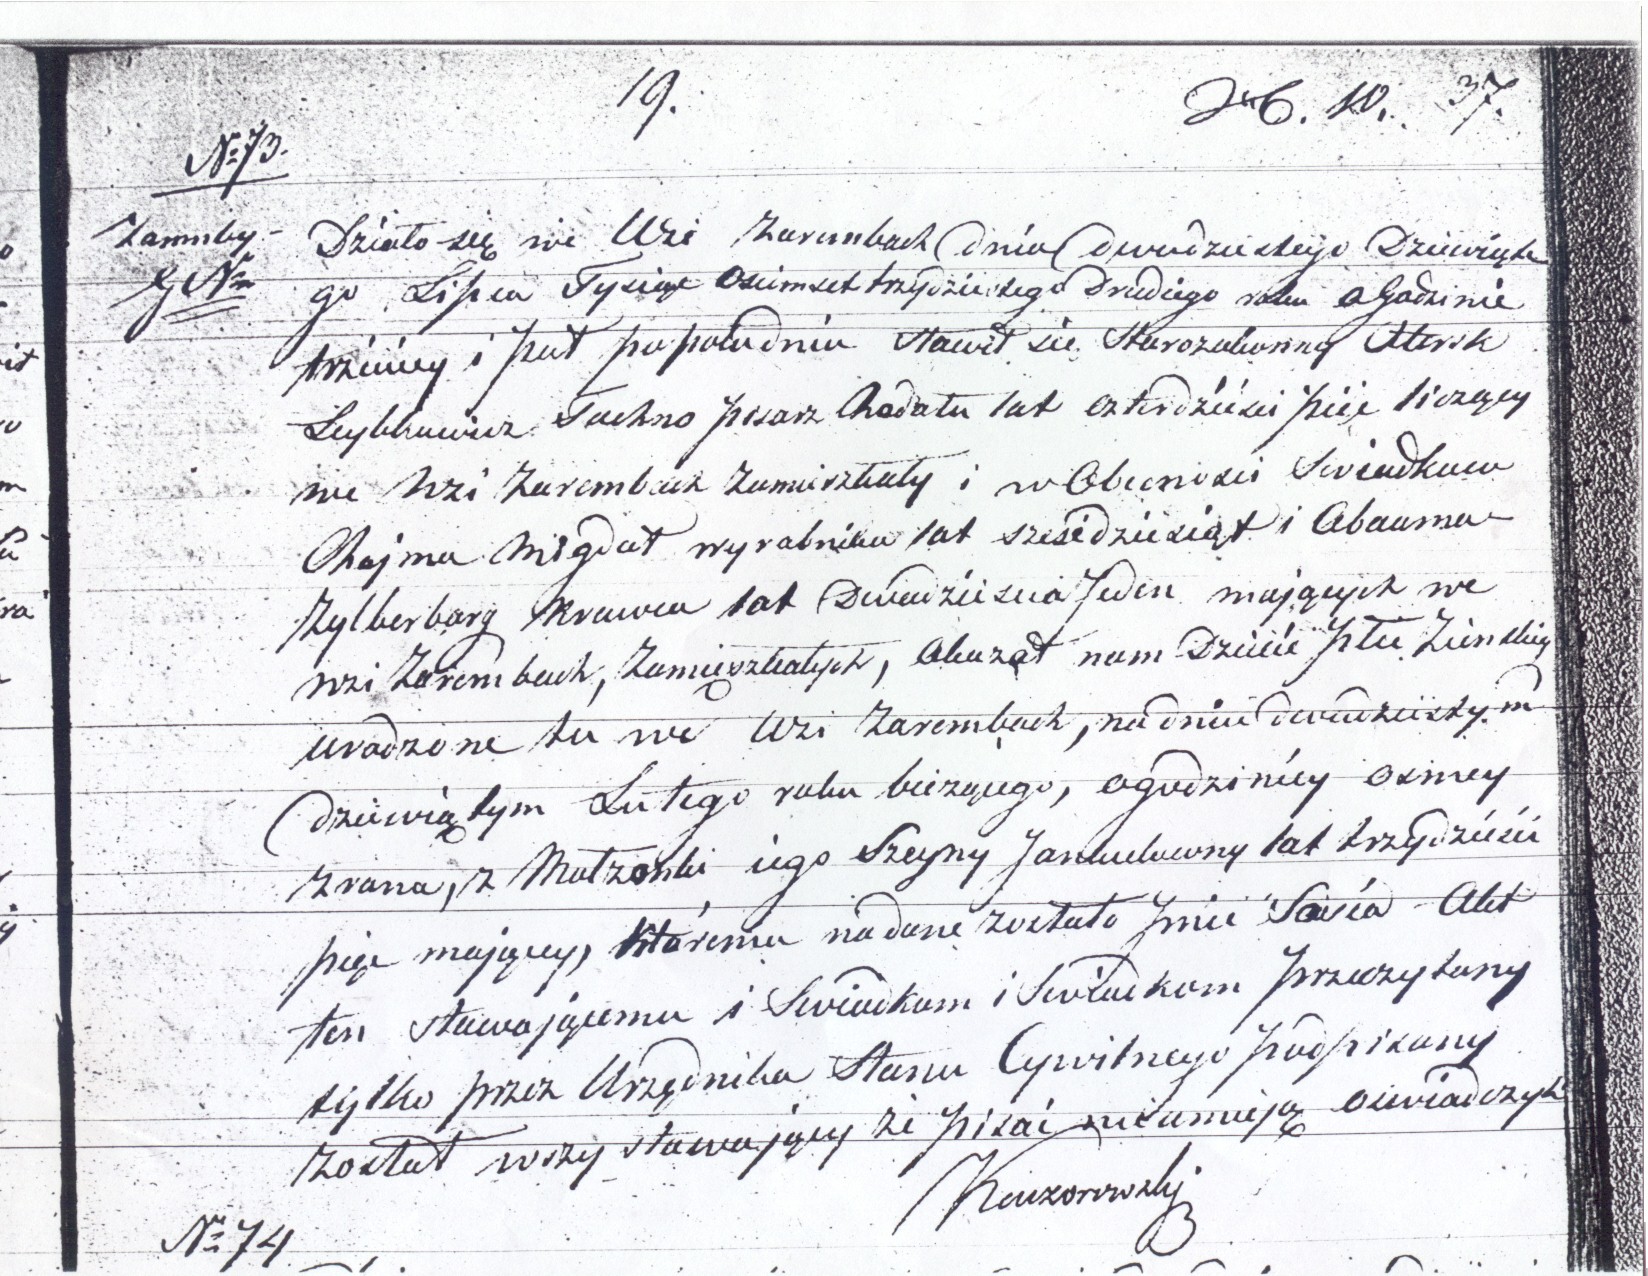 19.
37.
№ 73.
Zaremby
Działo się we Wzi Zarembach dnia dwudziestego Dziewiąte
go Lipca Tysiąc Osimset trzydziestego Drudiego roku o Godzinie
trzeciey i puł popołudniu stawił sie Starozakonny Herszk
Leybkowicz Tachno pisarz Chodatu lat czterdzieści pięć liczący
we Wzi Zarembach Zamieszkały i w Obecności Swiadkow
Chajma Migdał wyrobnika lat sześćdziesiąt i Abrama
Zylberbarg Krawca lat Dwadzieścia Jeden mających we
wzi Zarembach, Zamięszkałych, Okazał nam Dziecie płci Zieńskiey
urodzone tu we Wzi Zarembach, na dniu dwudziestym
dziewiątym Lutego roku bieżącego, o godziniey osmey
z rana, z Małzonki iego Szeyny Jankielowny lat trzydzieści
pięć maiącey, któremu nadane zostało Jmie Sosia Akt
ten stawaiącemu i Swiadkom i Swiadkom przeczytany
tylko przez Urzędnika Stanu Cywilnego podpisany
został wszy stawaiący że pisać nieumieją oswiadczyli
Kaczorowski
№ 74